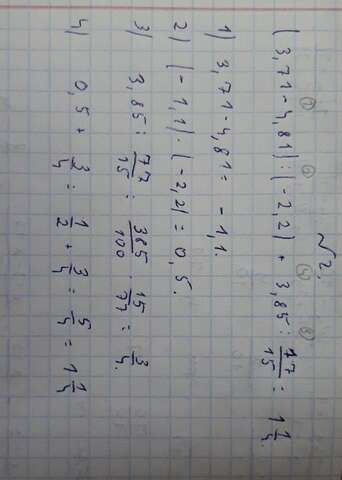 №2.
(3,71-4,81):(-2,2) + 3,85 : 77/15 = 1 1/4.
1) 3,71-4,81= -1,1.
2) (-1,1) : (-2,2) = 0,5.
3) 3,85 : 77/15 = 385/100 · 15/77 = 3/4.
4) 0,5 + 3/4 = 1/2 + 3/4 = 5/4 = 1 1/4